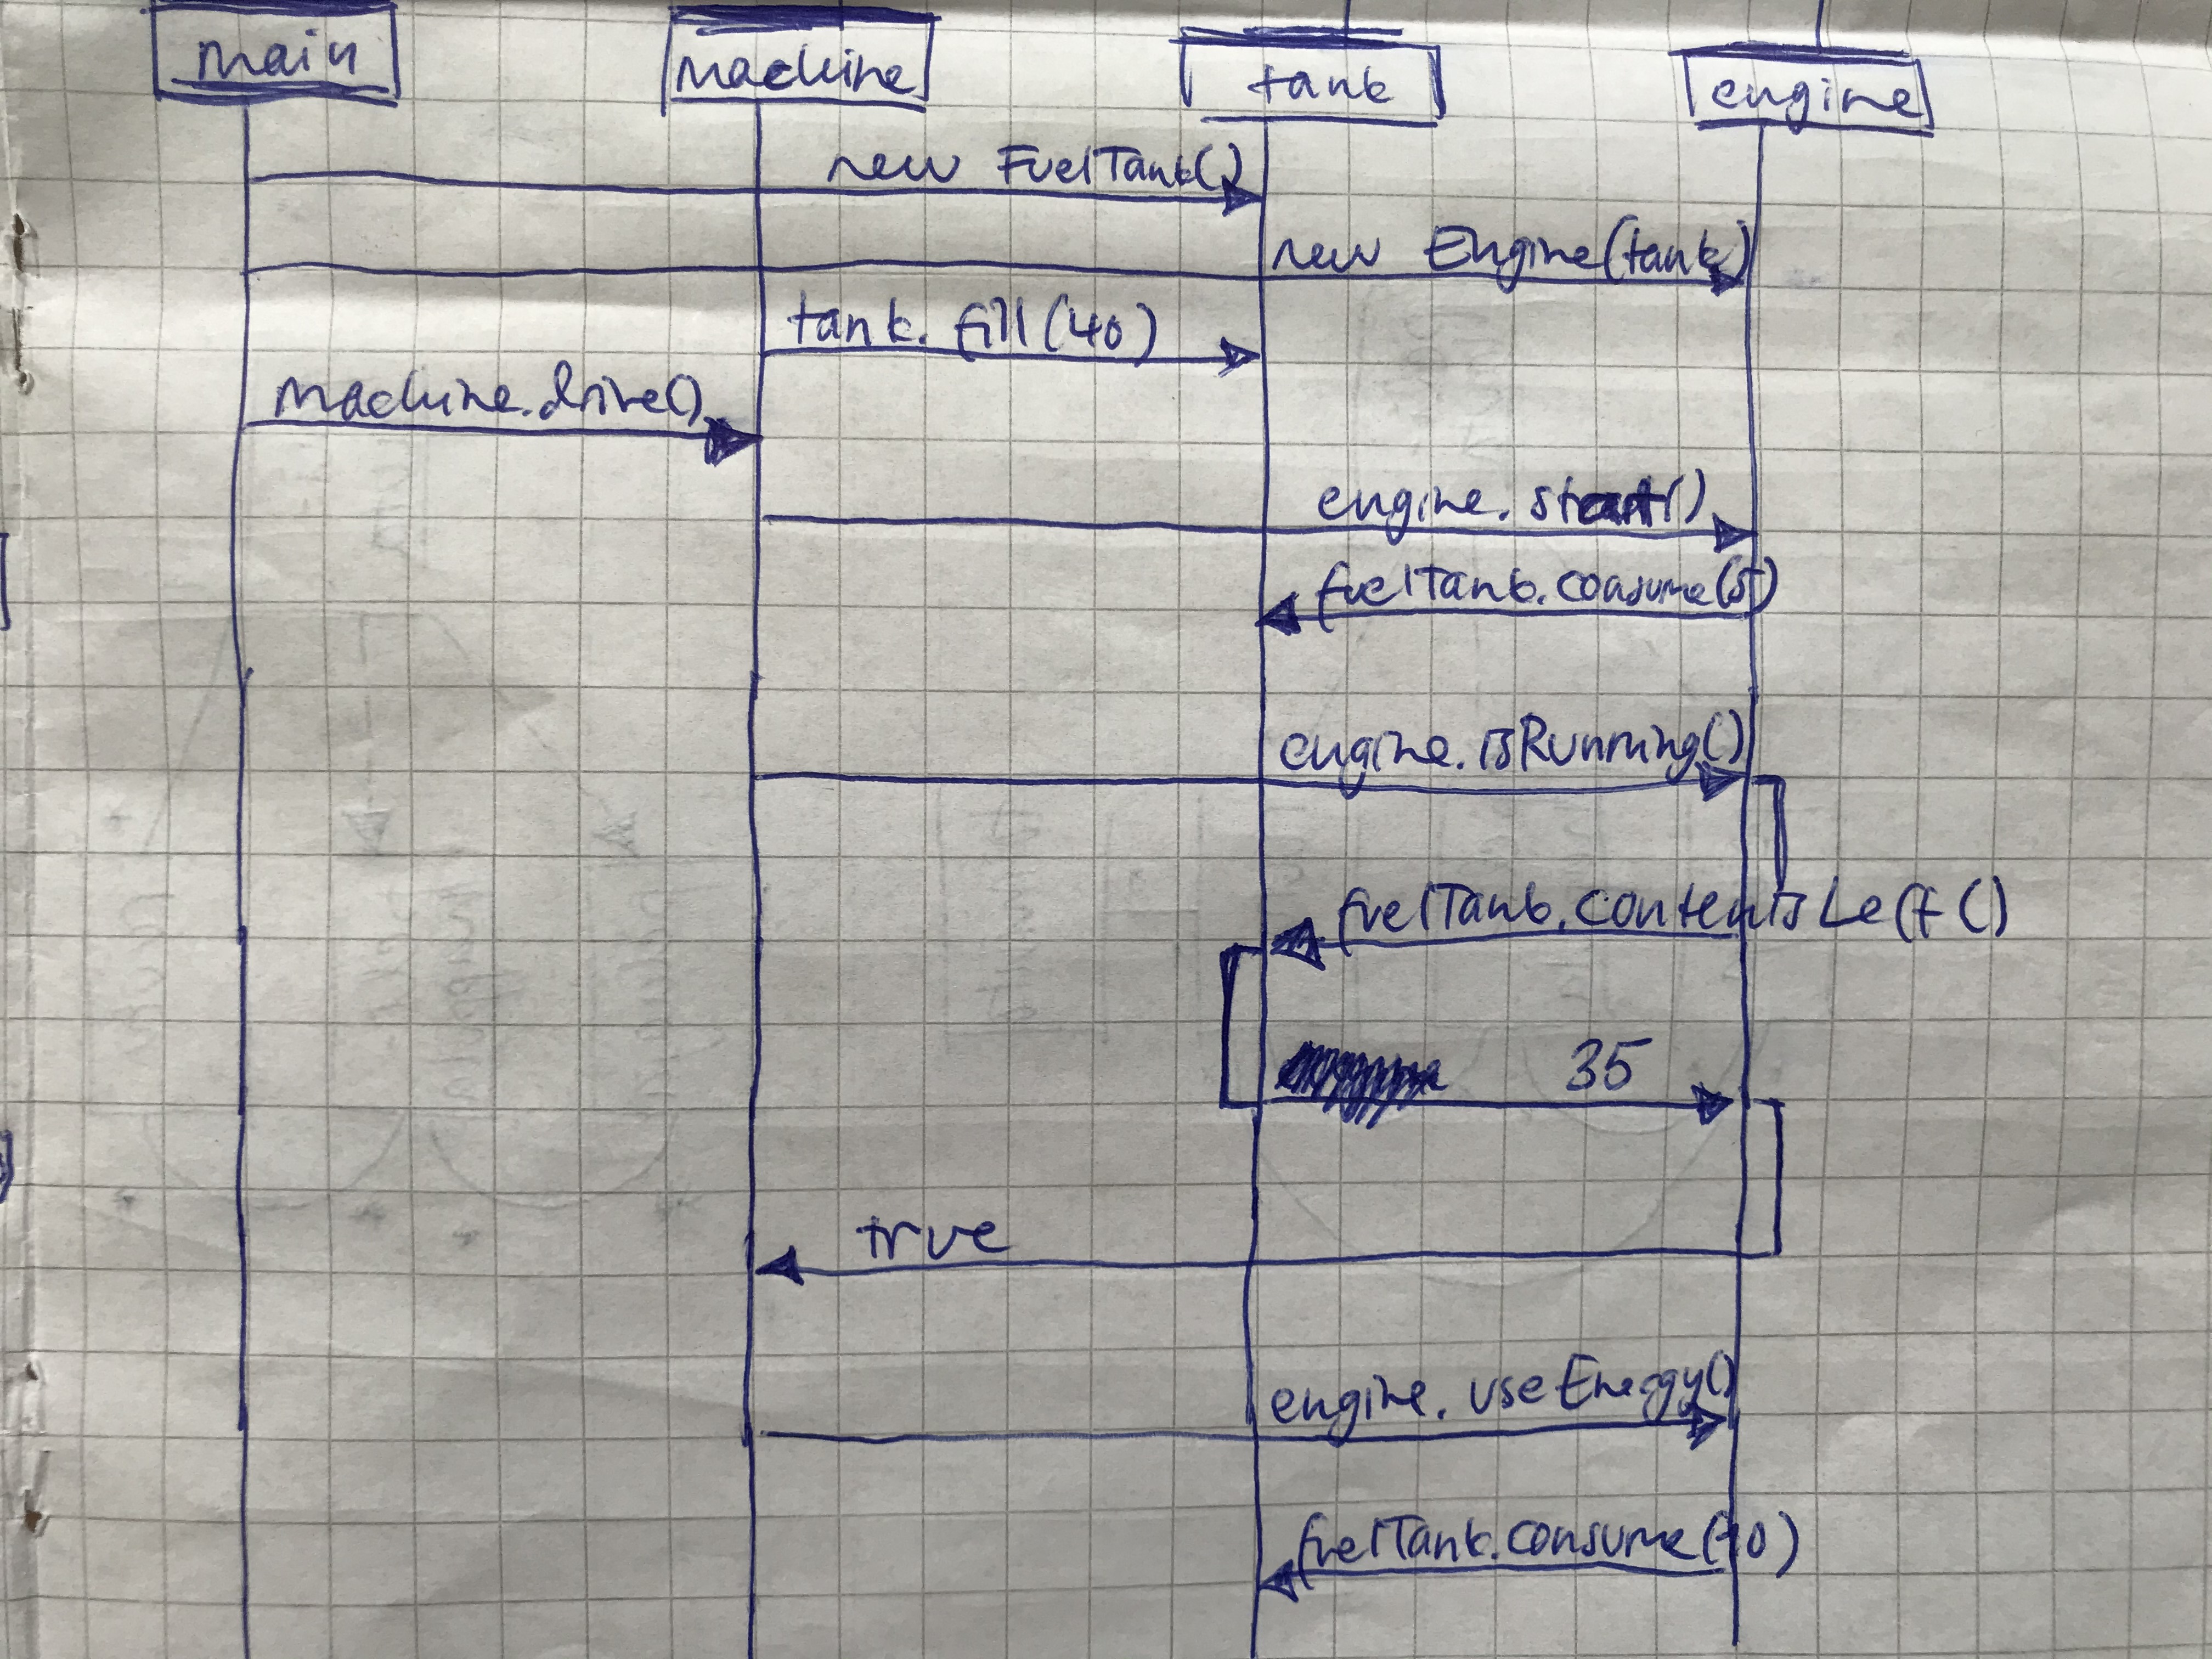 main
machine
tank
engine
new FuelTank()
new Engine(tank)
tank.fill(40)
machine.drive()
engine.start()
fuelTank.consume(5)
engine.isRunning()
fuelTank.contentsLeft()
35
true
engine.useEnergy()
fuelTank.consume(10)